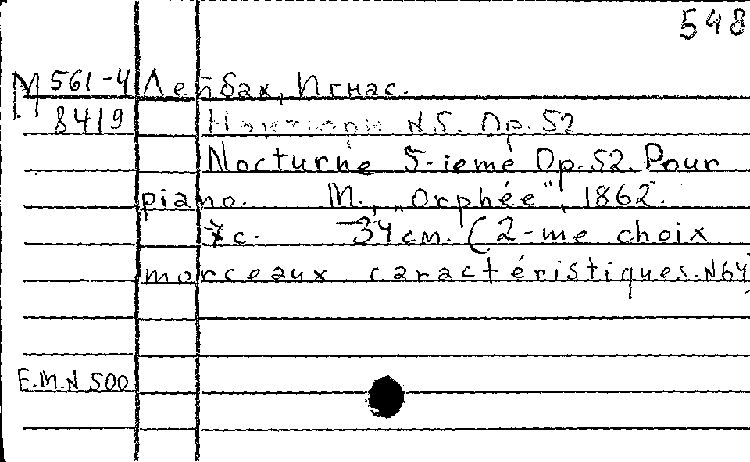 548
М 561-4 Лейбах, Игнас.
8419 Ноктюрн N5. Op.52
Nocturne 5-ième Op.52. Pour
piano. М., „Orphée", 1862.
7с. 34см. (2-me choix
morceaux caractéristiques. N64
E.M.N 500